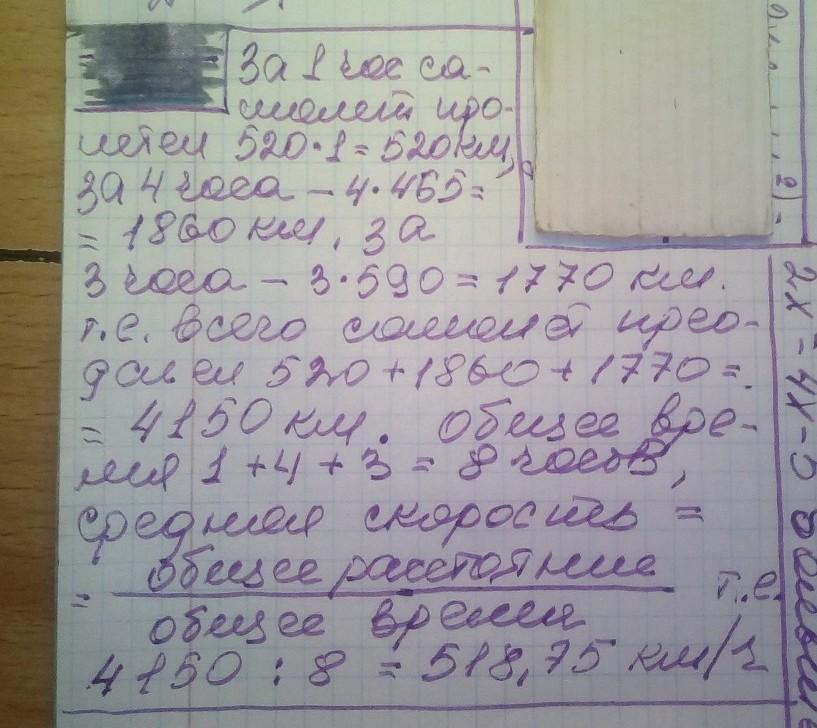 За 1 час са-
молет про-
летел 520·1=520 км,
за 4 часа – 4·465=
= 1860 км, за
3 часа – 3·590 = 1770 км.
т.е. всего самолет прео-
долел 520+1860+1770=
= 4150 км. общее вре-
мя 1+4+3 = 8 часов,
средняя скорость =
= общее расстояние
общее время
т.е.
4150 : 8 = 518,75 км/ч
2х = 4х-5